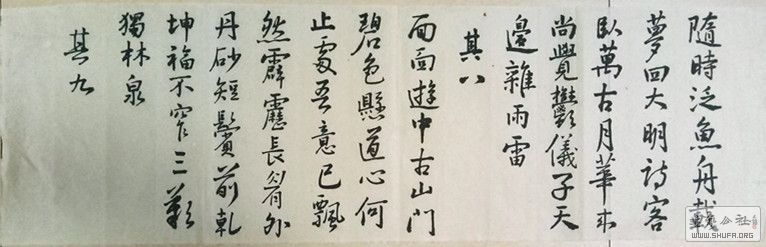 隨時泛魚舟載
夢回大明詩客
臥萬古月華木
尚覺儀子天
邊雜雨雷
其八
面面遊中古山門
碧色懸道心何
止處吾意已飄
然霹靂長眉外
丹砂短鬢前乾
坤福不窄三歎
獨林泉
其九
公社
WWW.SHUFA.ORG